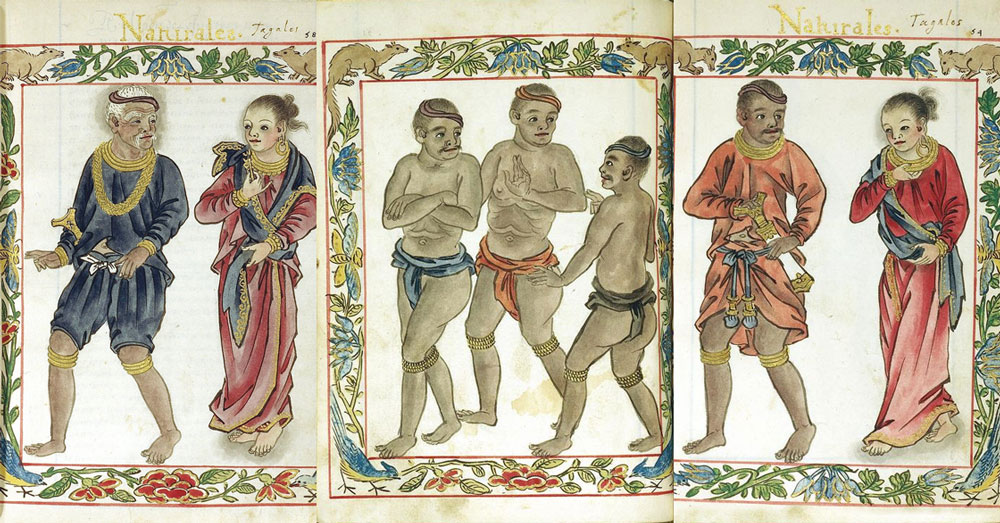 Naturales. Tagales 58
Naturales. Tagales 54